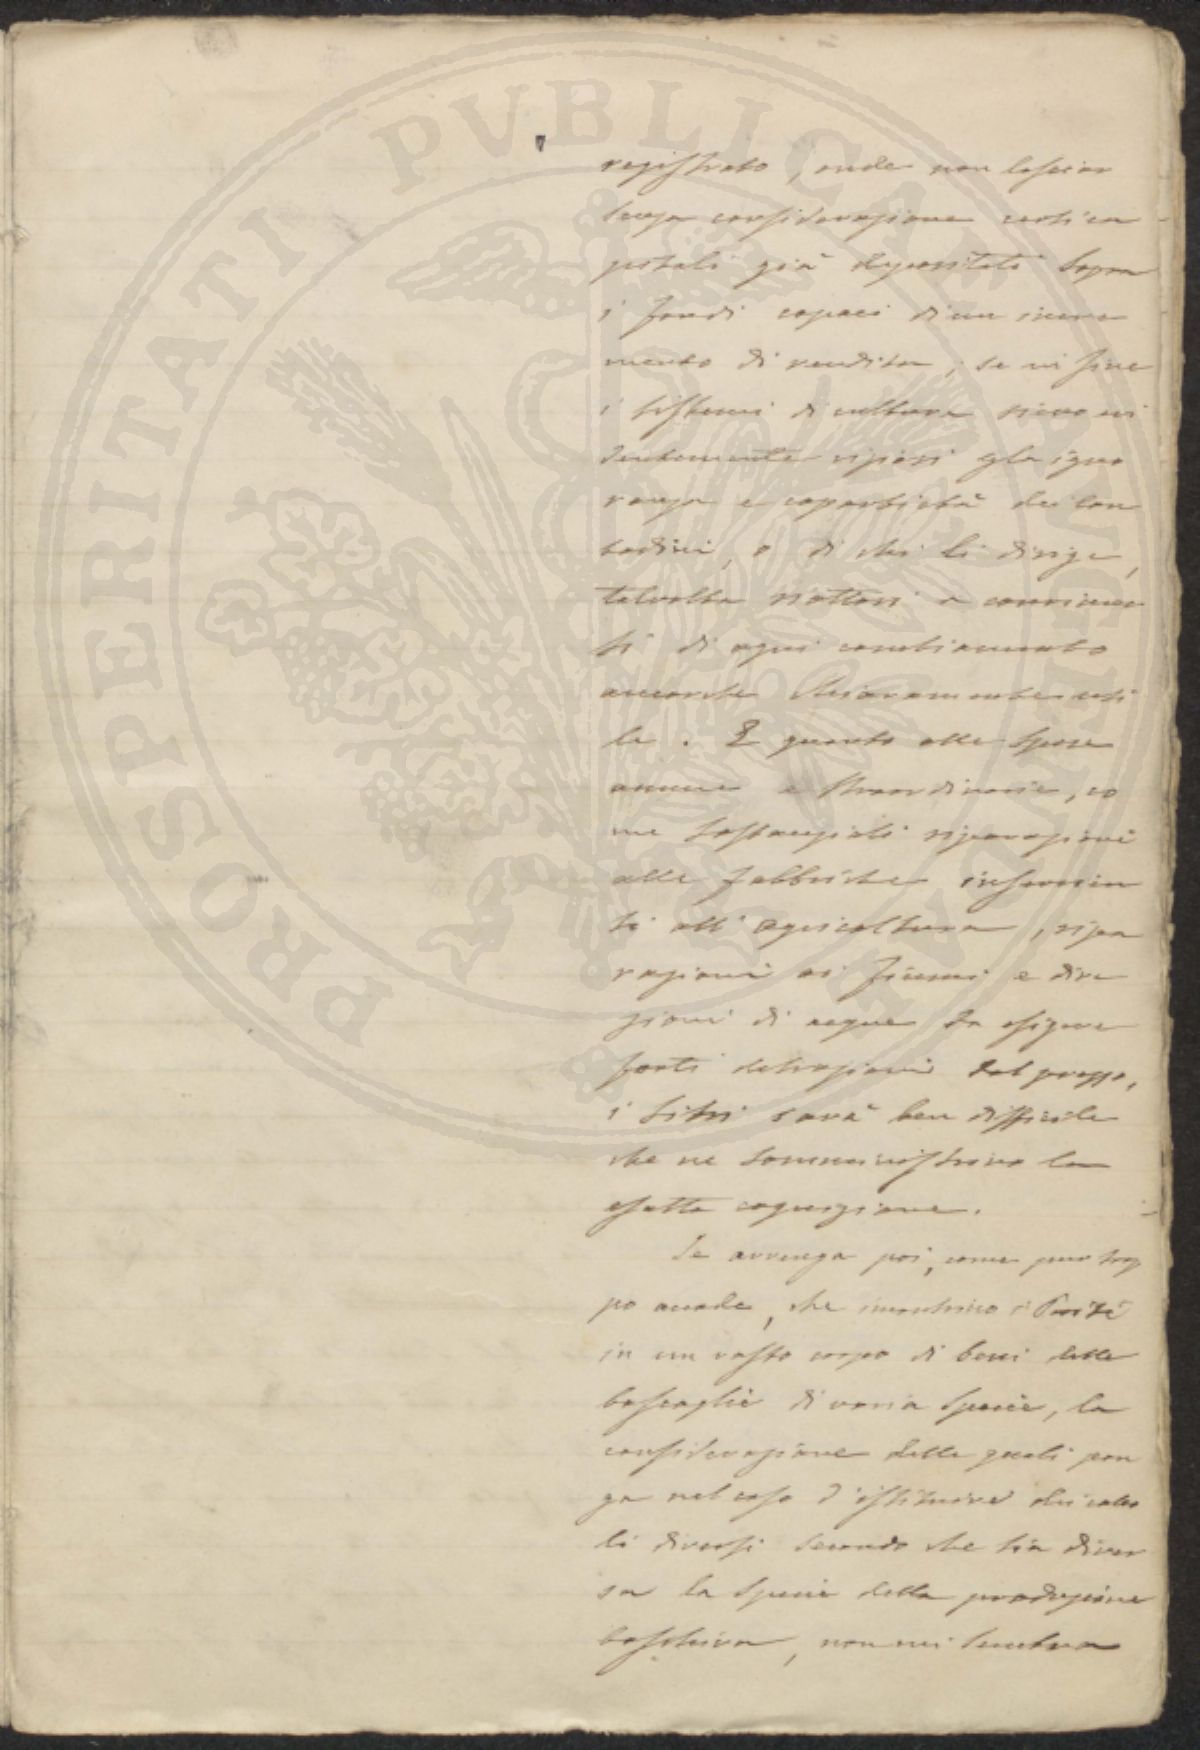 PROSPERITATI PVBLICAE AVGENDAE
registrato, onde non lasciar
senza considerazione certi ca
pitali già depositati sopra
i fondi capaci d'un incre
mento di rendita, se in fine
i sistemi di cultura sieno evi
dentemente viziosi p la igno
ranza e caparbietà dei con
tadini, o di chi li dirige,
talvolta a
ti di ogni cambiamento
ancorchè chiaramente uti
le. E quanto alle spese
annue e straordinarie, co
me sostanziali riparazioni
alle fabbriche inservien
ti all'agricoltura, ripa
razioni ai fiumi e dire
zioni di acque da esigere
forti detrazioni dal prezzo,
i libri sarà ben difficile
che ne somministrino la
esatta cognizione.
Se avvenga poi, come pur trop
po accade, che incontrino i Periti
in un vasto corpo di beni delle
boscaglie di varia specie, la
considerazione delle quali pon
ga nel caso d'istituire dei calco
li diversi secondo che sia diver
sa la specie della produzione
boschiva, non mi sembra